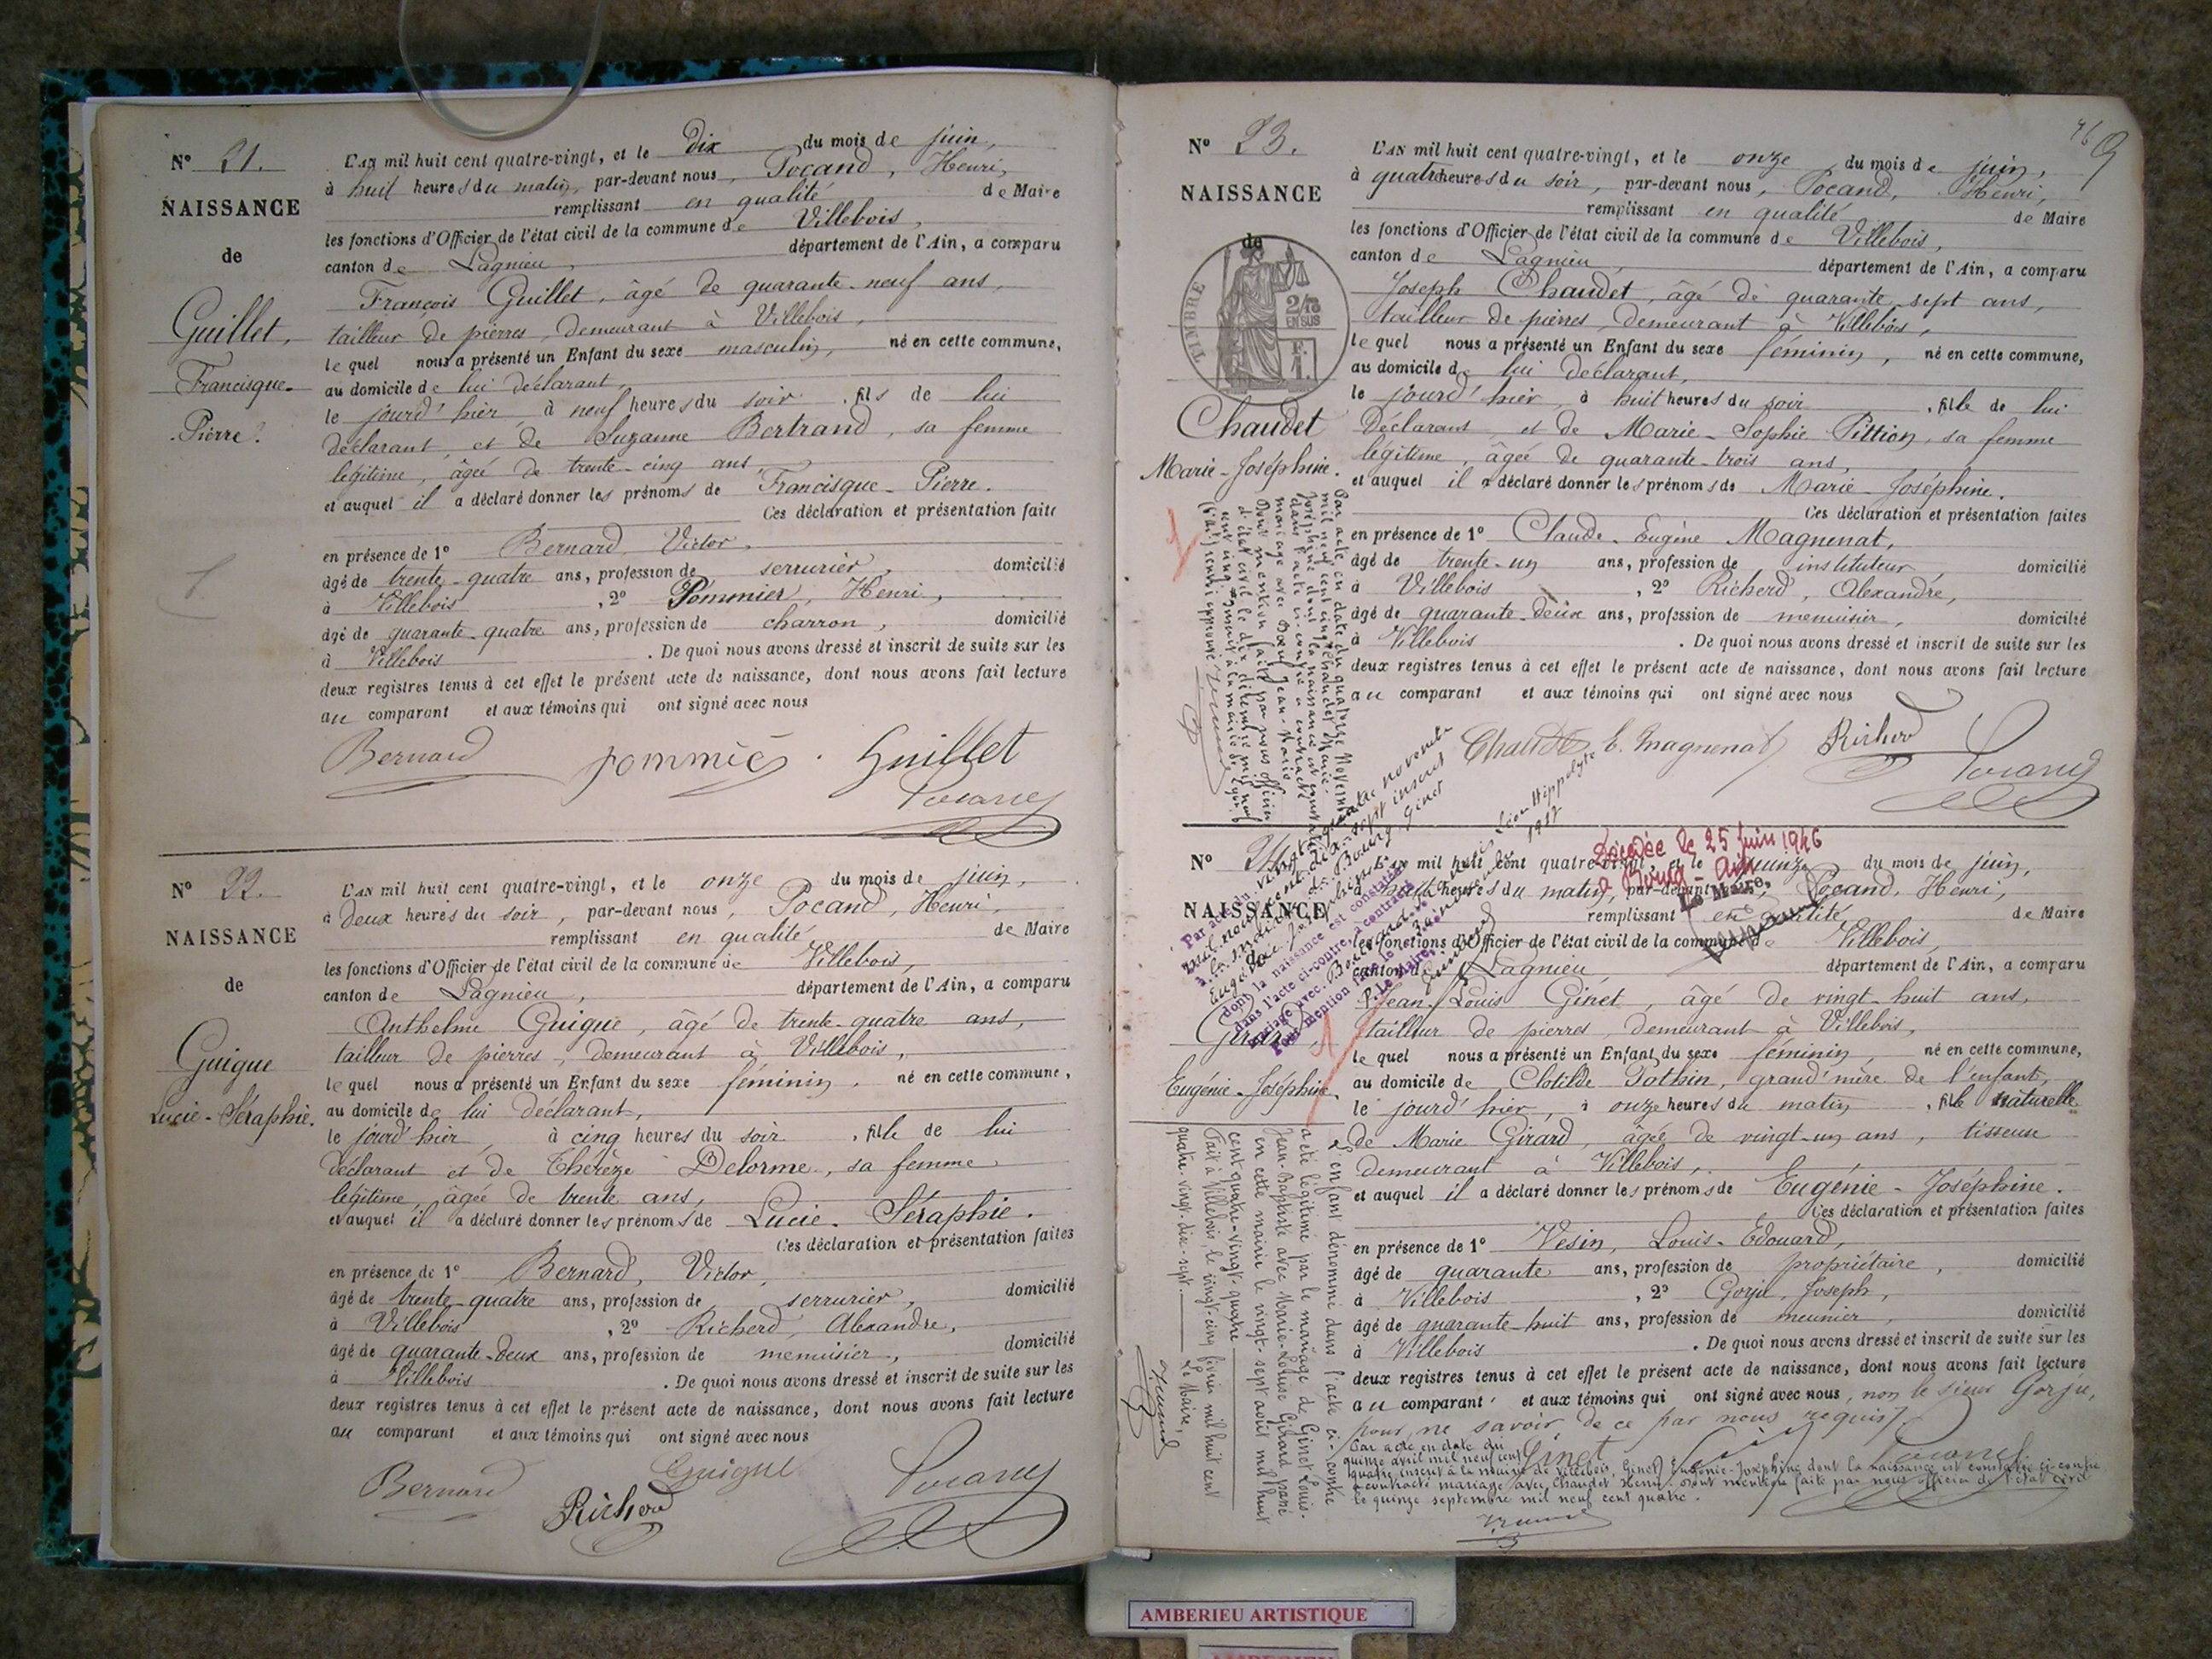 N° 21.
NAISSANCE
de
Guillet,
Francisque-
Pierre.
L'AN mil huit cent quatre-vingt, et le dix du mois de juin,
à huit heures du matin, par-devant nous, Pocand, Henri,
remplissant en qualité de Maire
les fonctions d'Officier de l'état civil de la commune de Villebois,
canton de Lagnieu, département de l'Ain, a comparu
François Guillet, âgé de quarante-neuf ans,
tailleur de pierres, demeurant à Villebois,
le quel nous a présenté un Enfant du sexe masculin, né en cette commune,
au domicile de lui déclarant,
le jourd'hier, à neuf heures du soir, fils de lui
déclarant et de Suzanne Bertrand, sa femme
légitime, âgée de trente-cinq ans,
et auquel il a déclaré donner les prénoms de Francisque-Pierre.
Ces déclaration et présentation faite
en présence de 1° Bernard, Victor,
âgé de trente-quatre ans, profession de serrurier, domicilié
à Villebois, 2° Pommier, Henri,
âgé de quarante-quatre ans, profession de charron, domicilié
à Villebois. De quoi nous avons dressé et inscrit de suite sur les
deux registres tenus à cet effet le présent acte de naissance, dont nous avons fait lecture
au comparant et aux témoins qui ont signé avec nous
Bernard pommié Guillet
Pocand
N° 22.
NAISSANCE
de
Guigue
Lucie-Séraphie.
L'AN mil huit cent quatre-vingt, et le onze du mois de juin,
à deux heures du soir, par-devant nous, Pocand, Henri,
remplissant en qualité de Maire
les fonctions d'Officier de l'état civil de la commune de Villebois,
canton de Lagnieu, département de l'Ain, a comparu
Anthelme Guigue, âgé de trente-quatre ans,
tailleur de pierres, demeurant à Villebois,
le quel nous a présenté un Enfant du sexe féminin, né en cette commune,
au domicile de lui déclarant,
le jourd'hier, à cinq heures du soir, fille de lui
déclarant et de Thérèze Delorme, sa femme
légitime, âgée de trente ans,
et auquel il a déclaré donner les prénoms de Lucie-Séraphie.
Ces déclaration et présentation faites
en présence de 1° Bernard, Victor,
âgé de trente-quatre ans, profession de serrurier, domicilié
à Villebois, 2° Richerd, Alexandre,
âgé de quarante-deux ans, profession de menuisier, domicilié
à Villebois. De quoi nous avons dressé et inscrit de suite sur les
deux registres tenus à cet effet le présent acte de naissance, dont nous avons fait lecture
au comparant et aux témoins qui ont signé avec nous
Bernard Guigue Pocand
Richerd
9
N° 23.
NAISSANCE
de
TIMBRE
2/10
EN SUS
Chaudet
Marie-Joséphine.
L'AN mil huit cent quatre-vingt, et le onze du mois de juin,
à quatre heures du soir, par-devant nous, Pocand, Henri,
remplissant en qualité de Maire
les fonctions d'Officier de l'état civil de la commune de Villebois,
canton de Lagnieu, département de l'Ain, a comparu
Joseph Chaudet, âgé de quarante-sept ans,
tailleur de pierres, demeurant à Villebois,
le quel nous a présenté un Enfant du sexe féminin, né en cette commune,
au domicile de lui déclarant,
le jourd'hier, à huit heures du soir, fille de lui
déclarant et de Marie-Sophie Pittion, sa femme
légitime, âgée de quarante-trois ans,
et auquel il a déclaré donner les prénoms de Marie-Joséphine.
Ces déclaration et présentation faites
en présence de 1° Claude-Eugène Magnenat,
âgé de trente-un ans, profession de instituteur, domicilié
à Villebois, 2° Richerd, Alexandre,
âgé de quarante-deux ans, profession de menuisier, domicilié
à Villebois. De quoi nous avons dressé et inscrit de suite sur les
deux registres tenus à cet effet le présent acte de naissance, dont nous avons fait lecture
au comparant et aux témoins qui ont signé avec nous
Chaudet E. Magnenat Richerd
Pocand
Par acte en date du quatorze Novembre
mil neuf cent cinq Chaudet Marie-
Joséphine dont la naissance est constatée
dans l'acte ci-contre a contracté
mariage avec Jean-Marie
Dont mention faite par nous officier
d'état civil le dix décembre mil neuf
cent cinq
N°
NAISSANCE
de
Girard,
Eugénie-Joséphine.
Décédée le 25 juin 1946
à Bourg-Ain
Le Maire,
L'AN mil huit cent quatre-vingt, et le quinze du mois de juin,
à heures du matin, par-devant nous, Pocand, Henri,
remplissant en qualité de Maire
les fonctions d'Officier de l'état civil de la commune de Villebois,
canton de Lagnieu, département de l'Ain, a comparu
Jean-Louis Ginet, âgé de vingt-huit ans,
tailleur de pierres, demeurant à Villebois,
le quel nous a présenté un Enfant du sexe féminin, né en cette commune,
au domicile de Clotilde Tothin, grand'mère de l'enfant,
le jourd'hier, à onze heures du matin, fille naturelle
de Marie Girard, âgée de vingt-un ans, tisseuse
demeurant à Villebois,
et auquel il a déclaré donner les prénoms de Eugénie-Joséphine.
Ces déclaration et présentation faites
en présence de 1° Vesin, Louis-Edouard,
âgé de quarante ans, profession de propriétaire, domicilié
à Villebois, 2° Gorju, Joseph,
âgé de quarante-huit ans, profession de meunier, domicilié
à Villebois. De quoi nous avons dressé et inscrit de suite sur les
deux registres tenus à cet effet le présent acte de naissance, dont nous avons fait lecture
au comparant et aux témoins qui ont signé avec nous, non le sieur Gorju,
pour ne savoir, de ce par nous requis.
Ginet Pocand
Par acte en date du
quinze avril mil neuf cent
quatre, inscrit à la mairie de Villebois, Ginet Eugénie-Joséphine dont la naissance est constatée ci-contre
a contracté mariage avec Chaudet Henri. Dont mention faite par nous officier de l'état civil
le quinze septembre mil neuf cent quatre.
L'enfant dénommé dans l'acte ci-contre
a été légitimé par le mariage de Ginet Louis-
Jean-Baptiste avec Marie-Louise Girard passé
en cette mairie le vingt-sept avril mil huit
cent quatre-vingt-quatre
Fait à Villebois, le vingt-cinq février mil huit cent
quatre-vingt-dix-sept. Le Maire,
Par acte du
dont la naissance est constatée
dans l'acte ci-contre, a contracté
mariage avec
Pour mention
P. Le Maire,
AMBERIEU ARTISTIQUE